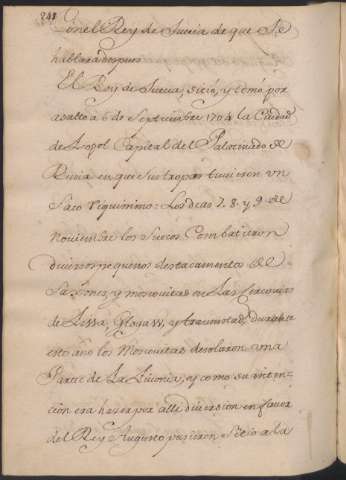 248
Con el Rey de Suecia de que Se
hablara despues
El Rey de Suecia, sitió, y tomó por
asalto a 6 de Septiembre 1704 la Ciudad
de Leopol Capital del Palatinado de
Rusia en que sus tropas tuvieron un
Saco riquisimo: Los dias 7. 8. y 9 de
Noviembre los Suecos Combatieron
diversos pequenos destacamentos de
Saxones, y moscovitas en las cercanias
de Lissa, Glogaw, y traunstad, durante
este año los Moscovitas desolaron una
Parte de La Livonia, y como su inten-
cion era hacer por alli diversion en favor
del Rey Augusto pusieron Sitio a la